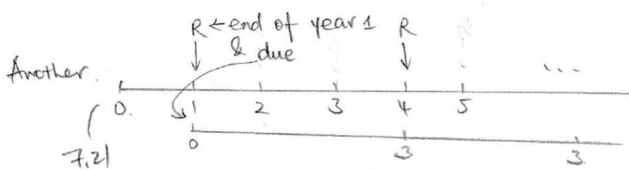 R ← end of year 1 R
& due
Another. ...
0. 1 2 3 4 5
7.21 0 3 3